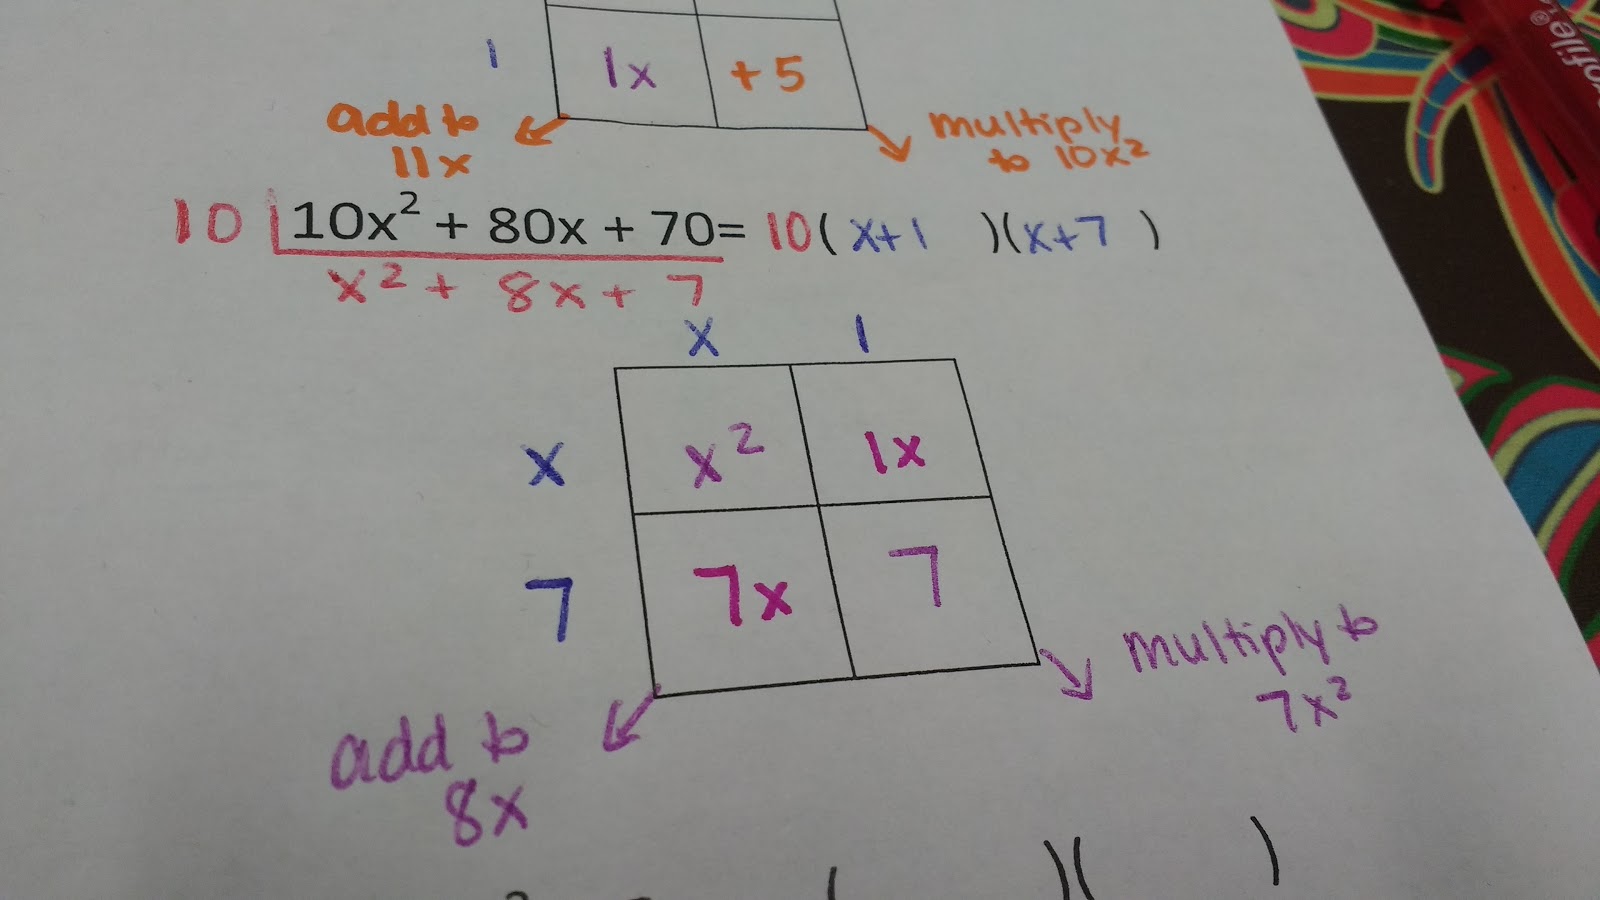 1 1x +5
add to
11x
multiply
to 10x²
10 10x² + 80x + 70= 10( x+1 )(x+7 )
x² + 8x + 7
x 1
x x² 1x
7 7x 7
add to
8x
multiply to
7x²
( )( )